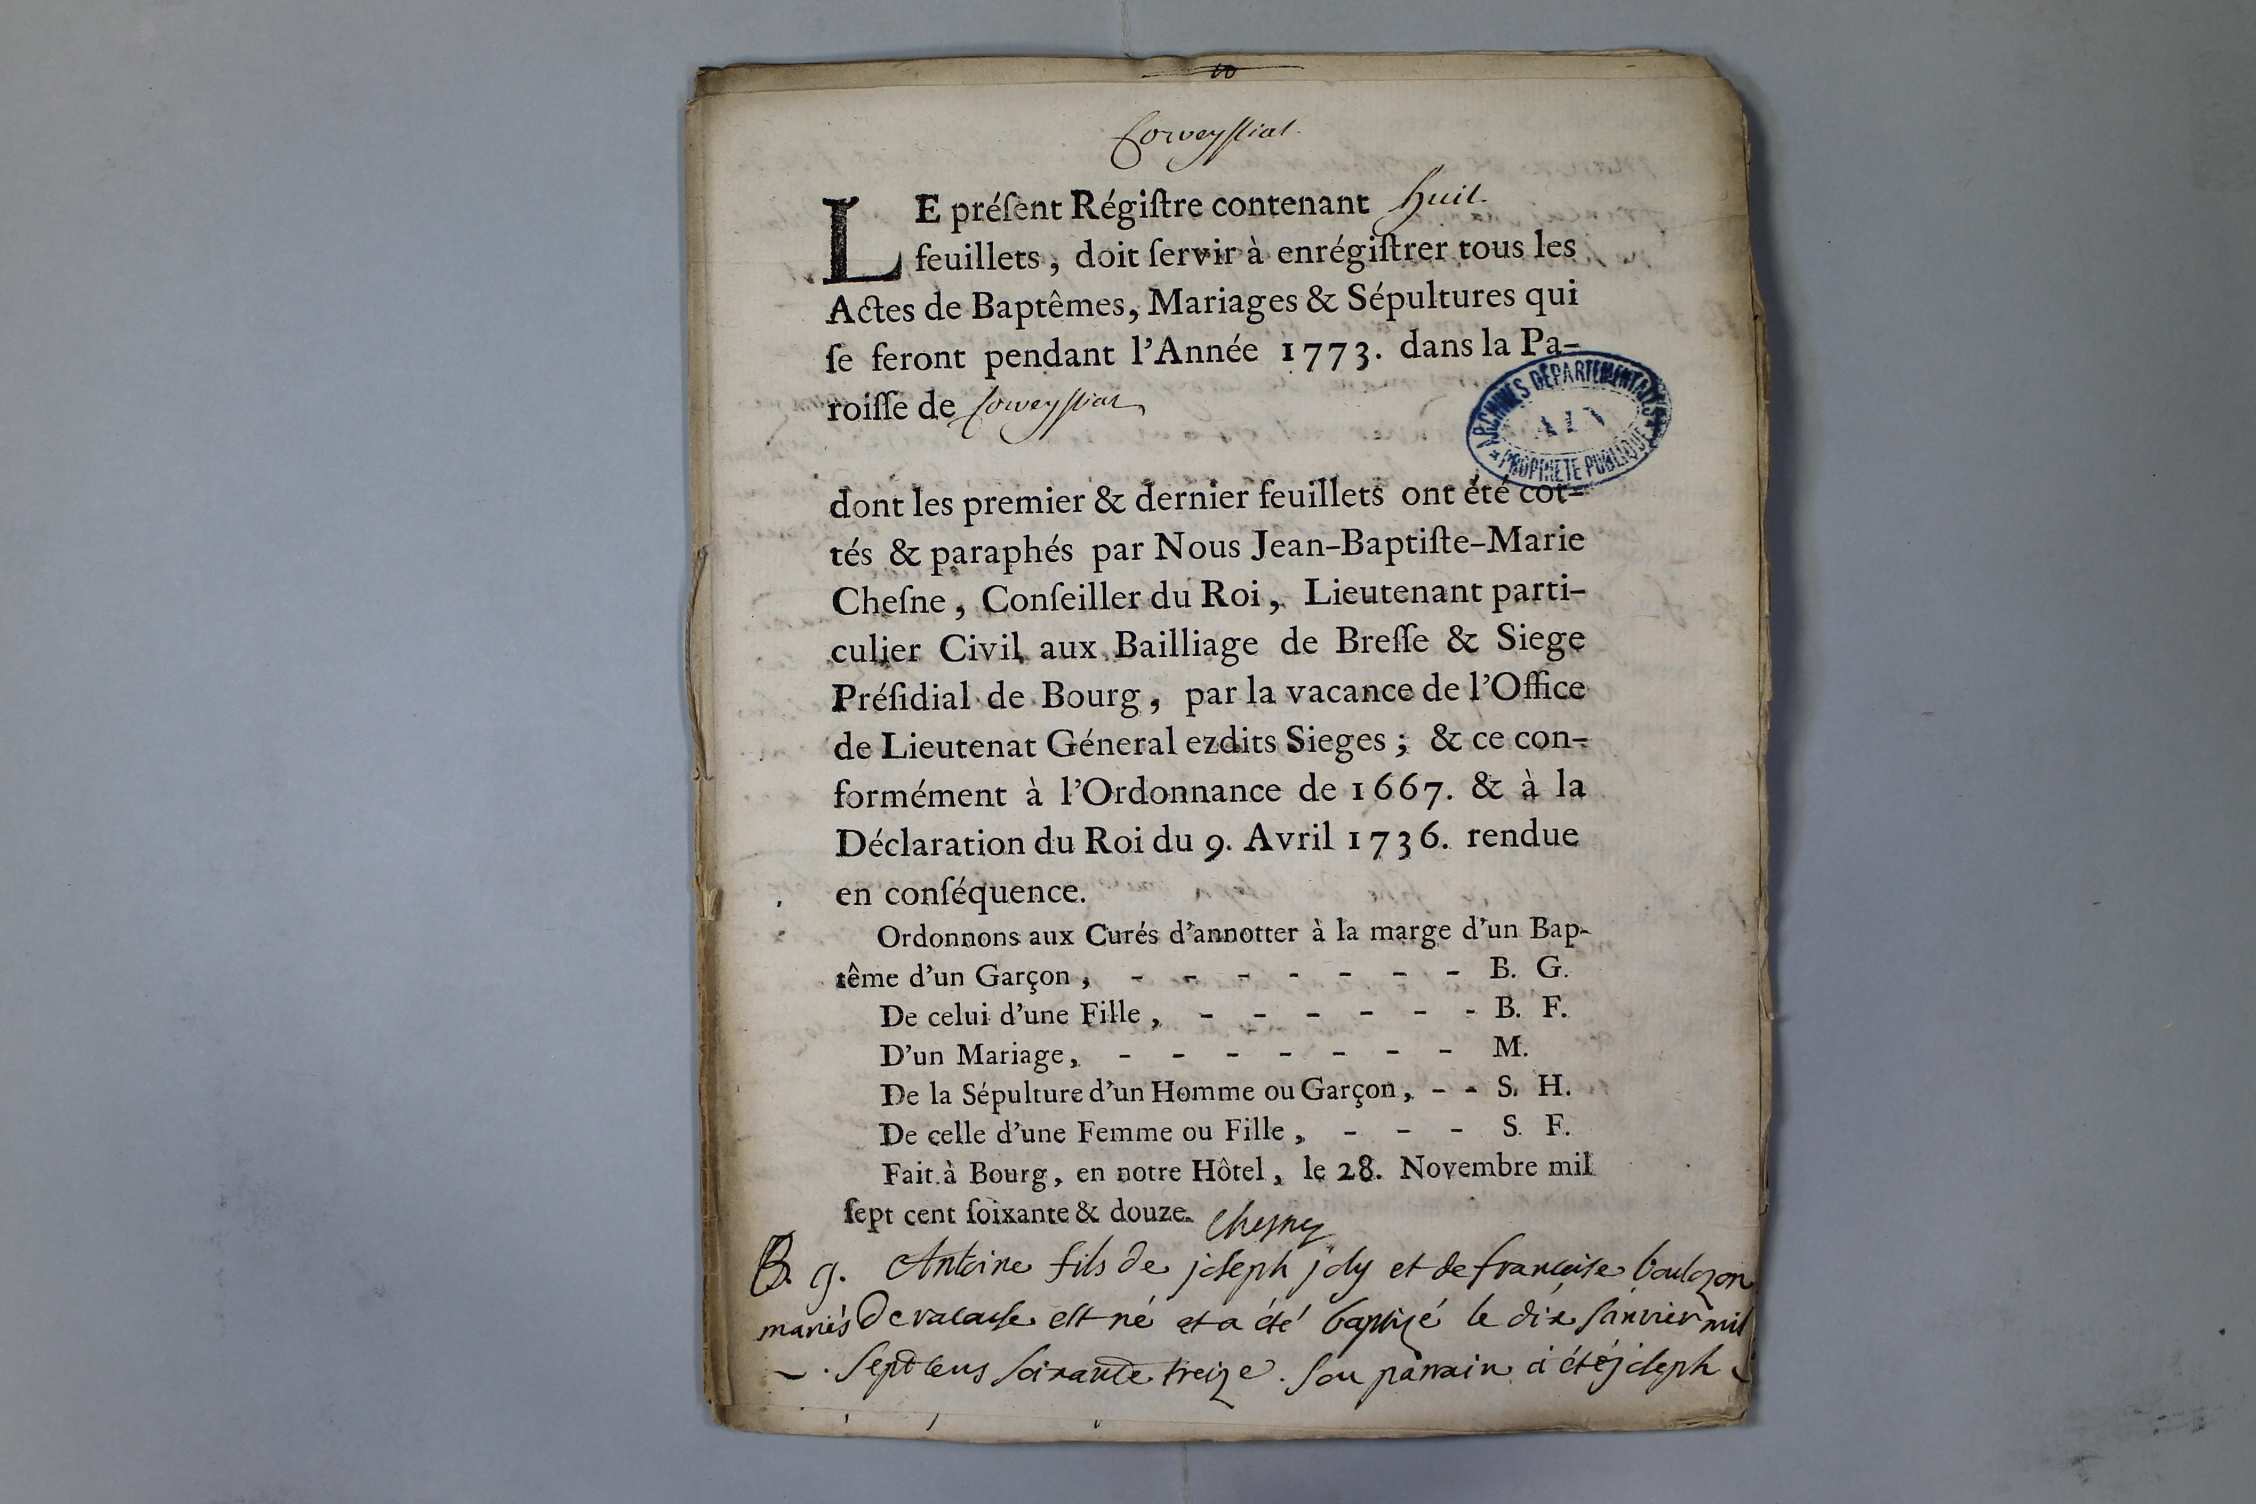 10
Corveyssiat.
LE préſent Régiſtre contenant huit.
feuillets, doit ſervir à enrégiſtrer tous les
Actes de Baptêmes, Mariages & Sépultures qui
ſe feront pendant l'Année 1773. dans la Pa-
roiſſe de Corveyssiat
ARCHIVES DEPARTEMENTALES
AIN
PROPRIETE PUBLIQUE
dont les premier & dernier feuillets ont été cot-
tés & paraphés par Nous Jean-Baptiſte-Marie
Cheſne, Conſeiller du Roi, Lieutenant parti-
culier Civil aux Bailliage de Breſſe & Siege
Préſidial de Bourg, par la vacance de l'Office
de Lieutenat Géneral ezdits Sieges; & ce con-
formément à l'Ordonnance de 1667. & à la
Déclaration du Roi du 9. Avril 1736. rendue
en conſéquence.
Ordonnons aux Curés d'annotter à la marge d'un Bap-
tême d'un Garçon, - - - - - - - B. G.
De celui d'une Fille, - - - - - - B. F.
D'un Mariage, - - - - - - - M.
De la Sépulture d'un Homme ou Garçon, - - S. H.
De celle d'une Femme ou Fille, - - - S. F.
Fait à Bourg, en notre Hôtel, le 28. Novembre mil
ſept cent ſoixante & douze. Chesne
B. g. Antoine fils de joseph joly et de francoise boulozon
mariés de est né et a été baptizé le dix janvier mil
sept cens soixante treize. son parrain a été joseph